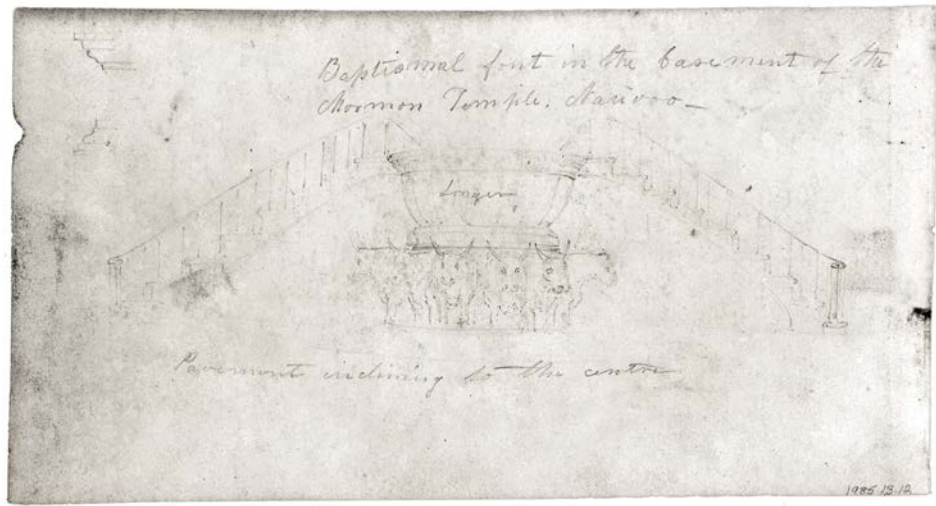 Baptismal font in the basement of the
Mormon Temple. Nauvoo—
Longer
Pavement inclining to the centre
1985.13.12